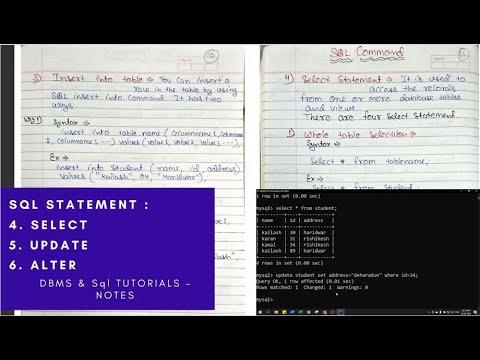 3) Insert into table → You can insert a
row in the table by using
SQL insert into Command. It has two
ways
Way 1) Syntax →
insert into table name (columnname1, column
2, columnname3 ---) values (value1, value2, values ---);
Ex →
insert into Student (name, id, address)
values ("kailash", 04, "Haridwar");
SQL Command
4) Select Statement → It is used to
access the records
from one or more database tables
and views.
There are four Select Statement
1) Whole table Selection →
Syntax →
Select * from tablename;
Ex →
Select * from Student;
SQL STATEMENT :
4. SELECT
5. UPDATE
6. ALTER
DBMS & Sql TUTORIALS -
NOTES
1 row in set (0.00 sec)
mysql> select * from student;
| name | id | address |
| kailash | 30 | haridwar |
| karan | 31 | rishikesh |
| kamal | 34 | rishikesh |
| kailash | 89 | haridwar |
4 rows in set (0.00 sec)
mysql> update student set address="deharadun" where id=34;
Query OK, 1 row affected (0.01 sec)
Rows matched: 1 Changed: 1 Warnings: 0
mysql>